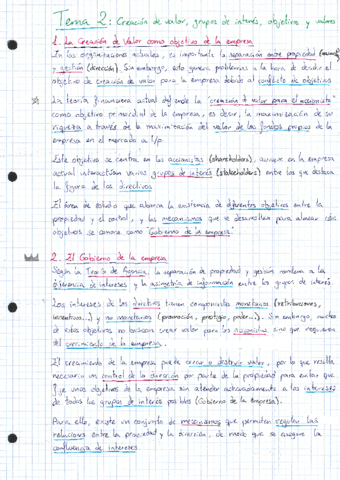 Tema 2: Creación de valor, grupos de interés, objetivos y valores
1. La Creación de Valor como objetivo de la empresa
En las organizaciones actuales, es importante la separación entre propiedad
y gestión (dirección). Sin embargo, esto genera problemas a la hora de decidir el
objetivo de creación de valor para la empresa debido al conflicto de objetivos
La teoría financiera actual defiende la "creación de valor para el accionista"
como objetivo primordial de la empresa, es decir, la maximización de su
riqueza a través de la maximización del valor de los fondos propios de la
empresa en el mercado a l/p
Este objetivo se centra en los accionistas (shareholders), aunque en la empresa
actual interactúan varios grupos de interés (stakeholders) entre los que destaca
la figura de los directivos
El área de estudio que abarca la existencia de diferentes objetivos entre la
propiedad y el control, y los mecanismos que se desarrollan para alinear
objetivos se conoce como "Gobierno de la empresa"
2. El Gobierno de la empresa
Según la Teoría de Agencia, la separación de propiedad y gestión conlleva a la
diferencia de intereses y la asimetría de información entre los grupos de interés
Los intereses de los directivos tienen componentes monetarios (retribuciones,
incentivos...) y no monetarios (promoción, prestigio, poder...). Sin embargo, muchos
de estos objetivos no buscan crear valor para los accionistas sino que requieren
del crecimiento de la empresa.
El crecimiento de la empresa puede crear o destruir valor, por lo que resulta
necesario un control de la dirección por parte de la propiedad para evitar que
fije unos objetivos de la empresa sin atender adecuadamente a los intereses
de todos los grupos de interés posibles (Gobierno de la empresa).
Para ello, existe un conjunto de mecanismos que permiten regular las
relaciones entre la propiedad y la dirección, de modo que se consigue la
confluencia de intereses